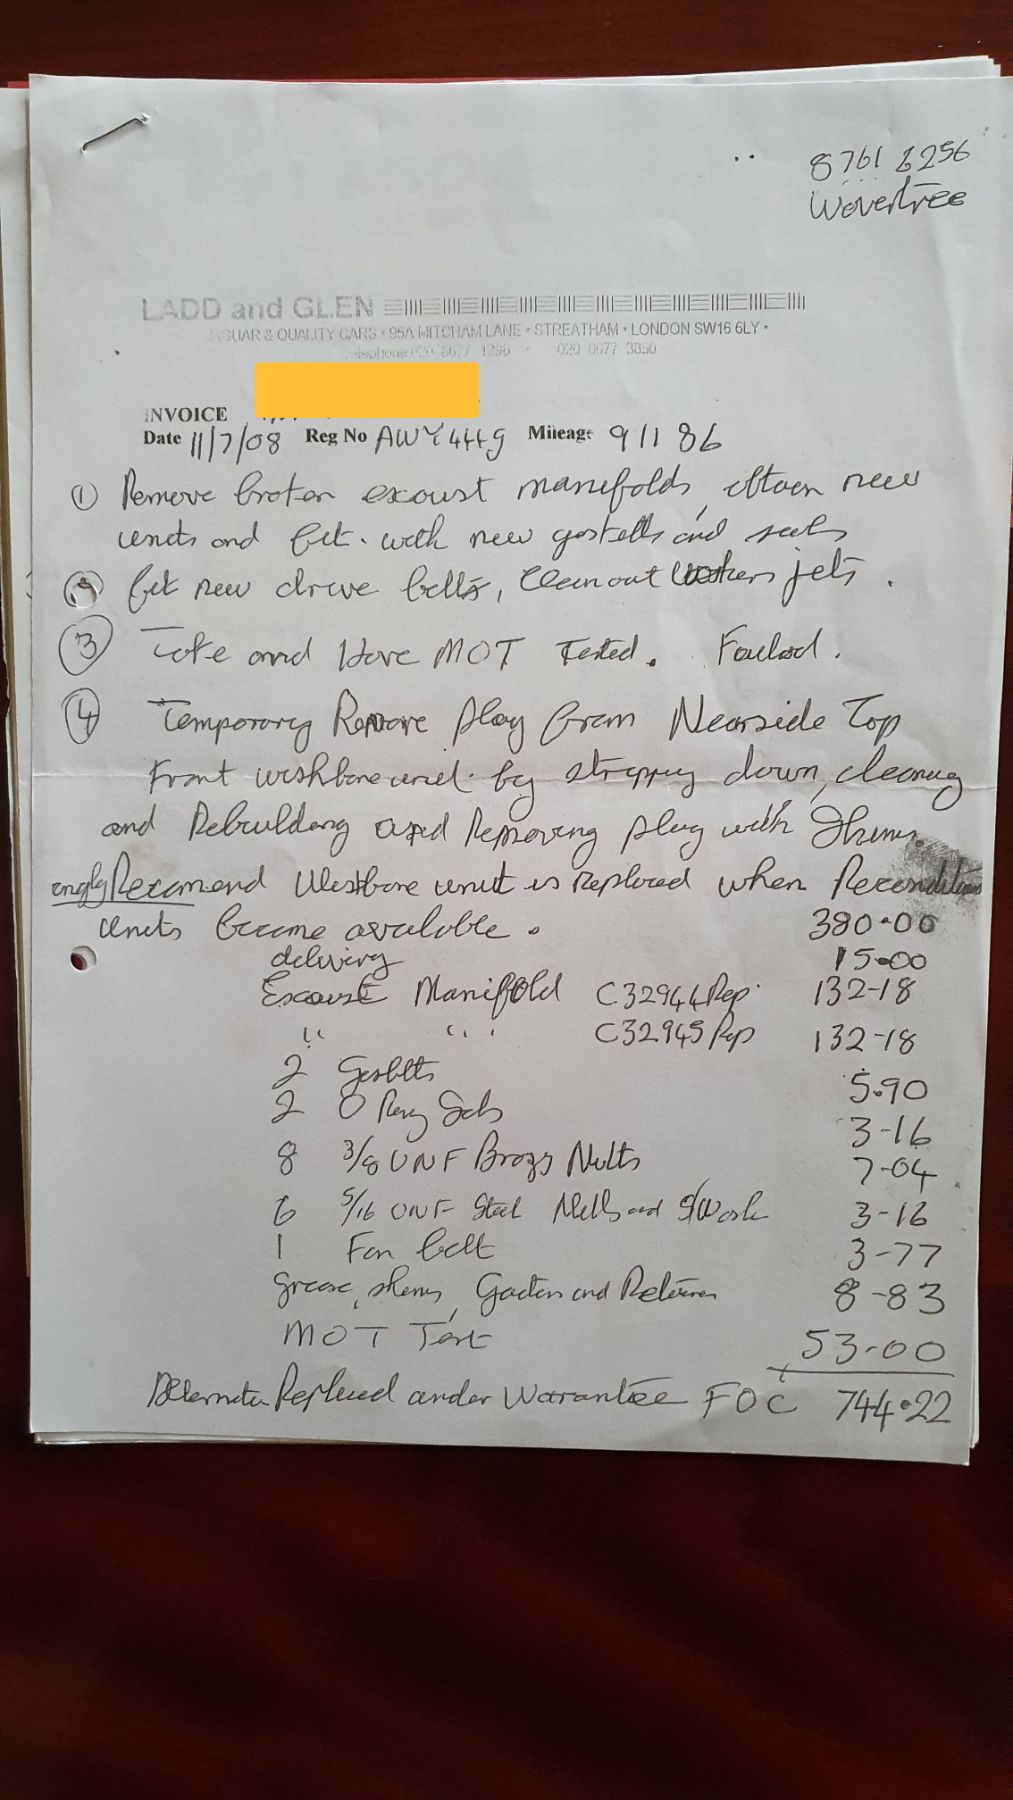 8761 8256
Wovertree
LADD and GLEN
GUAR & QUALITY CARS • 95A MITCHAM LANE • STREATHAM • LONDON SW16 6LY •
020 8677 3850
INVOICE
Date 11/7/08 Reg No AWY444G Mileage 91186
① Remove broken excoust manifolds, obtain new
units and fit. with new gasketts and seals
② fit new drive bells, Clean out Washers jets.
③ Take and Have MOT Tested. Failed.
④ Temporary Remove play from Nearside Top
Front wishbone unit. by stripping down, cleaning
and Rebuilding and Removing play with Shims.
Recomend Wishbone unit is replaced when Recondition
units become available. 380.00
delivery 15.00
Excoust Manifold C32944 Rep. 132-18
" " C32945 Rep 132-18
2 Gasketts 5.90
2 O Ring Seals 3-16
8 3/8 UNF Brass Nutts 7-04
6 5/16 UNF Steel Nutts and S/Wash 3-16
1 Fan belt 3-77
Grease, shims, Gaitors and Retainers 8-83
MOT Test 53-00
Alternator Replaced under Warantee FOC 744.22